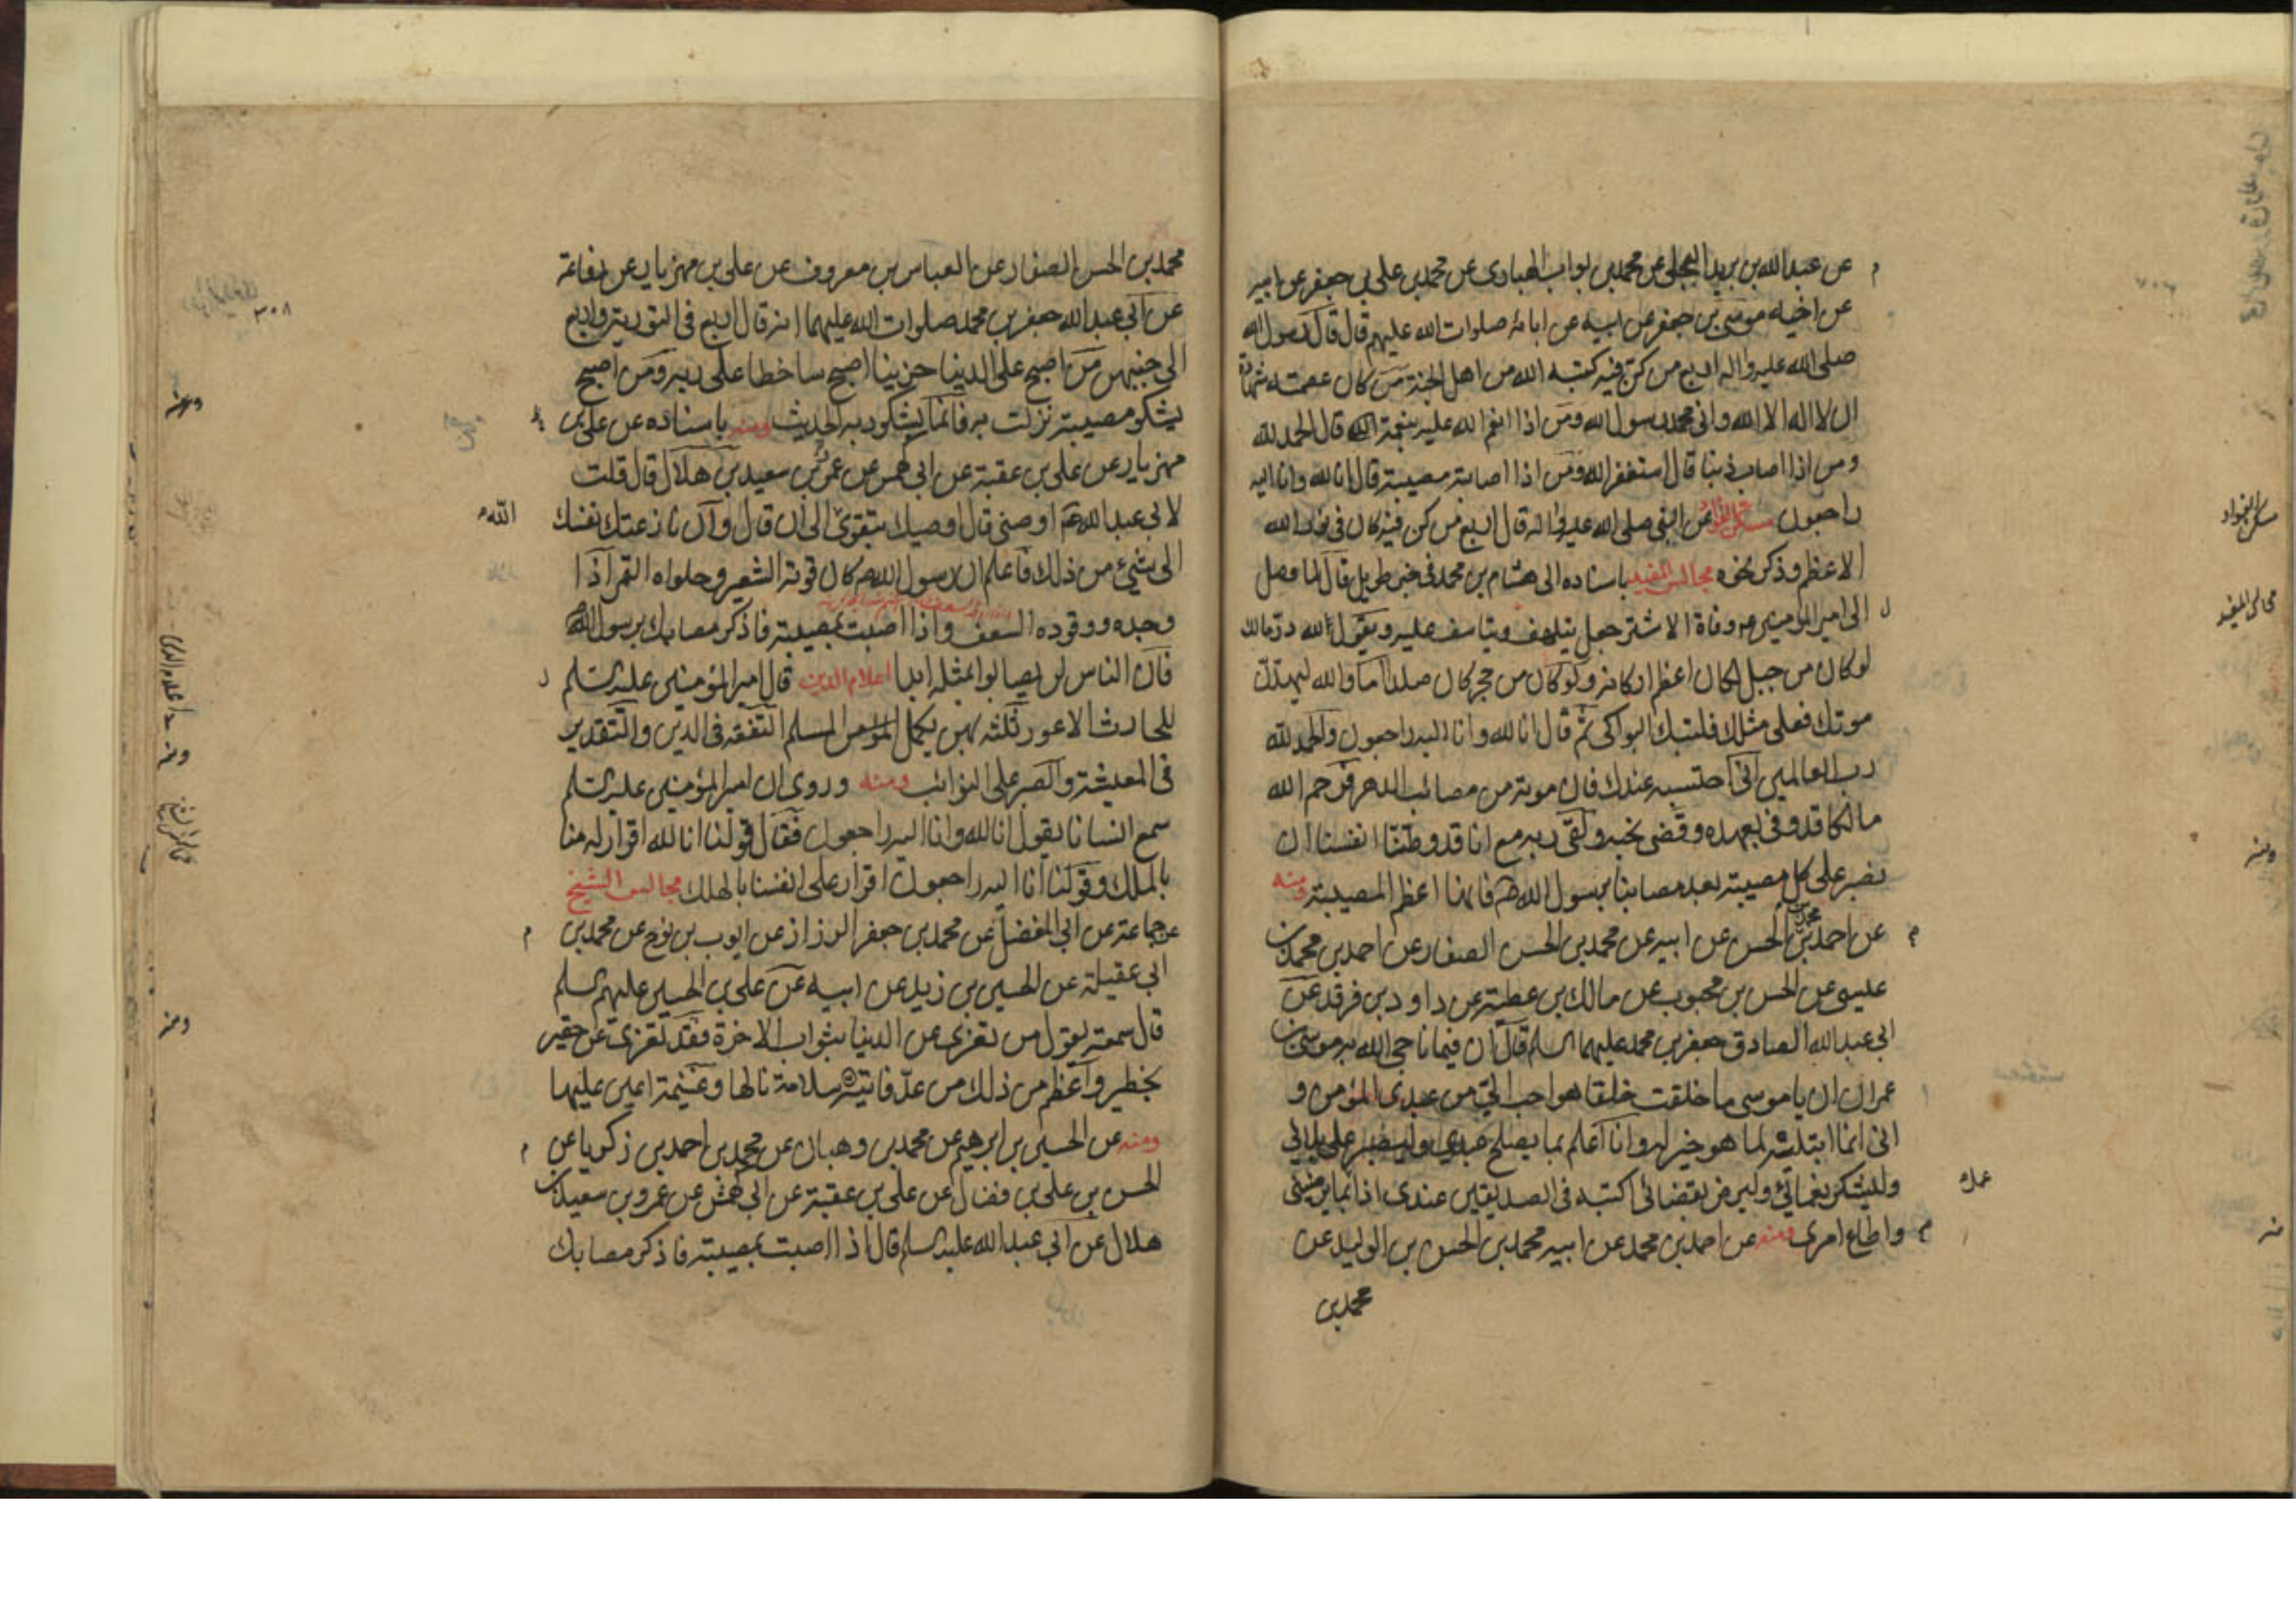 عن عبد الله بن بريد البجلي عن محمد بن بواب الهبادى عن محمد بن علي بن جعفر عن ابيه
عن اخيه موسى بن جعفر عن ابيه عن ابائه صلوات الله عليهم قال قال رسول الله
صلى الله عليه واله اربع من كن فيه كتبه الله من اهل الجنة من كان عصمته شهادة
ان لا اله الا الله وانى محمد رسول الله ومن اذا انعم الله عليه بنعمة قال الحمد لله
ومن اذا اصاب ذنبا قال استغفر الله ومن اذا اصابته مصيبة قال انا لله وانا اليه
راجعون مسكن الفؤاد عن النبى صلى الله عليه واله قال اربع من كن فيه كان فى نور الله
الاعظم وذكر نحوه مجالس المفيد باسناده الى هشام بن محمد فى خبر طويل قال لما وصل
الى امير المؤمنين وفاة الاشتر جعل يتلهف ويتاسف عليه ويقول لله در مالك
لو كان من جبل لكان اعظم اركانه ولو كان من حجر كان صلدا اما والله ليهدن
موتك فعلى مثلك فلتبك البواكى ثم قال انا لله وانا اليه راجعون والحمد لله
رب العالمين انى احتسبه عندك فان موته من مصائب الدهر فرحم الله
مالكا قد وفى بعهده وقضى نحبه ولقى ربه مع انا قد وطنا انفسنا ان
نصبر على كل مصيبة بعد مصابنا برسول الله ص فانها اعظم المصيبة ومنه
عن احمد بن محمد بن الحسن عن ابيه عن محمد بن الحسن الصفار عن احمد بن محمد بن
عيسى عن الحسن بن محبوب عن مالك بن عطية عن داود بن فرقد عن
ابى عبد الله الصادق جعفر بن محمد عليهما السلم قال ان فيما ناجى الله به موسى بن
عمران ان يا موسى ما خلقت خلقا هو احب الى من عبدى المؤمن و
انى انما ابتليته لما هو خير له وانا اعلم بما يصلح عبدى وليصبر على بلائى
وليشكر نعمائى وليرض بقضائى اكتبه فى الصديقين عندى اذا عمل بما يرضينى
واطاع امرى ومنه عن احمد بن محمد عن ابيه محمد بن الحسن بن الوليد عن
محمد بن
مسكن الفؤاد
مجالس المفيد
ومنه
عمل
منه
محمد بن الحسن الصفار عن العباس بن معروف عن على بن مهزيار عن رفاعة
عن ابى عبد الله جعفر بن محمد صلوات الله عليهما انه قال اربع فى التورية واربع
الى جنبهن من اصبح على الدنيا حزينا اصبح ساخطا على ربه ومن اصبح
يشكو مصيبة نزلت به فانما يشكو ربه الحديث ومنه باسناده عن على بن
مهزيار عن على بن عقبة عن ابى كهمس عن عمرو بن سعيد بن هلال قال قلت
لابى عبد الله ع اوصنى قال اوصيك بتقوى الله الى ان قال وان نازعتك نفسك
الى شيئ من ذلك فاعلم ان رسول الله ص كان قوته الشعير وحلواه التمر اذا
وجده ووقوده السعف واذا اصبت بمصيبة فاذكر مصابك برسول الله
فان الناس لن يصابوا بمثله ابدا اعلام الدين قال امير المؤمنين عليه السلم
للحارث الاعور ثلثة بهن يكمل المسلم التفقه فى الدين والتقدير
فى المعيشة والصبر على النوائب ومنه وروى ان امير المؤمنين عليه السلم
سمع انسانا يقول انا لله وانا اليه راجعون فقال قولنا انا لله اقرار له منا
بالملك وقولنا انا اليه راجعون اقرار على انفسنا بالهلك مجالس الشيخ
عن جماعة عن ابى المفضل عن محمد بن جعفر الرزاز عن ايوب بن نوح عن محمد بن
ابى عقيلة عن الحسين بن زيد عن ابيه عن على بن الحسين عليهم السلم
قال سمعته يقول من تعزى عن الدنيا بثواب الاخرة فقد تعزى عن حقير
بخطير واعظم من ذلك من عد فائته سلامة نالها وغنيمة اعين عليها
ومنه عن الحسين بن ابرهيم عن محمد بن وهبان عن محمد بن احمد بن زكريا عن
الحسن بن على بن فضال عن على بن عقبة عن ابى كهمش عن عمرو بن سعيد بن
هلال عن ابى عبد الله عليه السلم قال اذا اصبت بمصيبة فاذكر مصابك
٣٠٨
ومنه
الله
ومنه